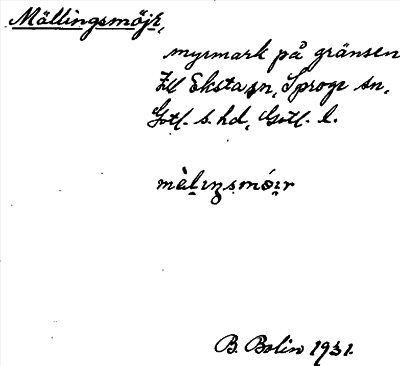 Mällingsmöjr,
myrmark på gränsen
till Eksta sn, Sproge sn,
Gotl. s. hd, Gotl. l.
màlıŋsmóır
B. Bolin 1931.